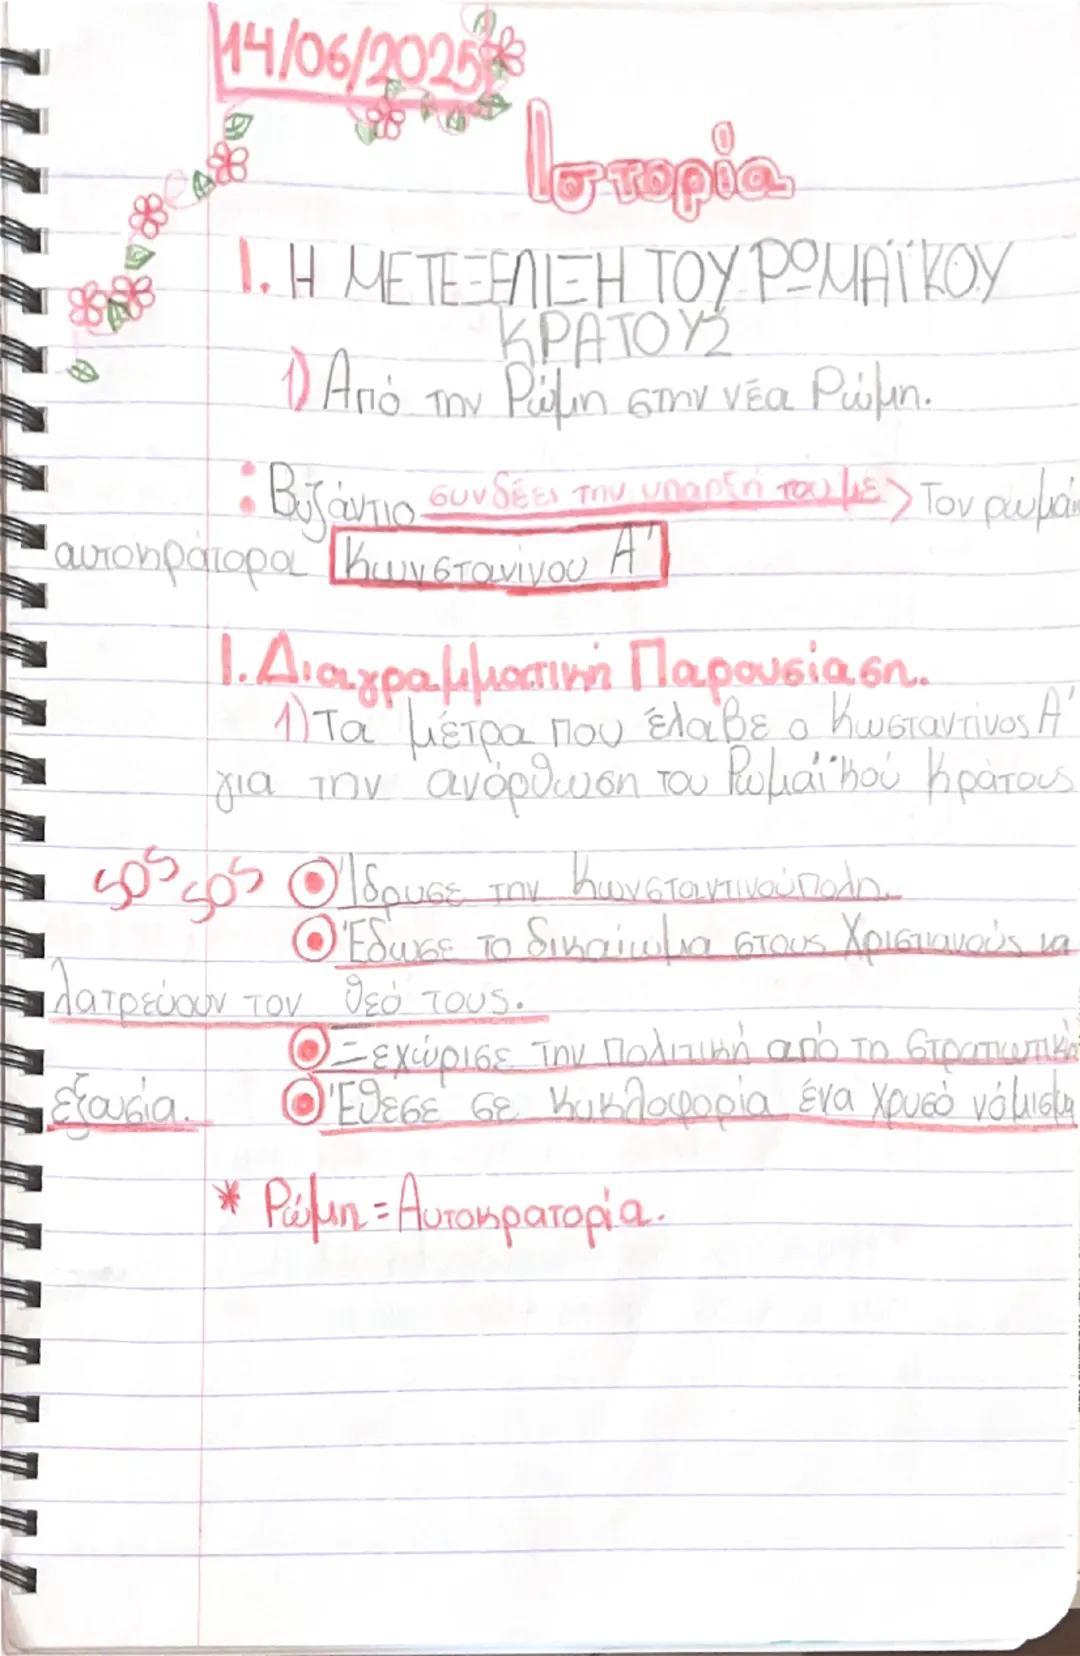 14/06/2025
Ιστορία
1. Η ΜΕΤΕΞΕΛΙΞΗ ΤΟΥ ΡΩΜΑΪΚΟΥ
ΚΡΑΤΟΥΣ
1) Από την Ρώμη στην νέα Ρώμη.
: Βυζάντιο συνδέει την υπαρξή του με > Τον ρωμαίο
αυτοκράτορα Κωνστανίνου Α'
1. Διαγραμματική Παρουσίαση.
1) Τα μέτρα που έλαβε ο Κωσταντίνος Α'
για την ανόρθωση του Ρωμαϊκού Κράτους
SOS SOS Ίδρυσε την Κωνσταντινούπολη.
Έδωσε το δικαίωμα στους Χριστιανούς να
λατρεύουν τον θεό τους.
Ξεχώρισε την πολιτική από τη στρατιωτική
εξουσία. Έθεσε σε κυκλοφορία ένα χρυσό νόμισμα
* Ρώμη = Αυτοκρατορία.